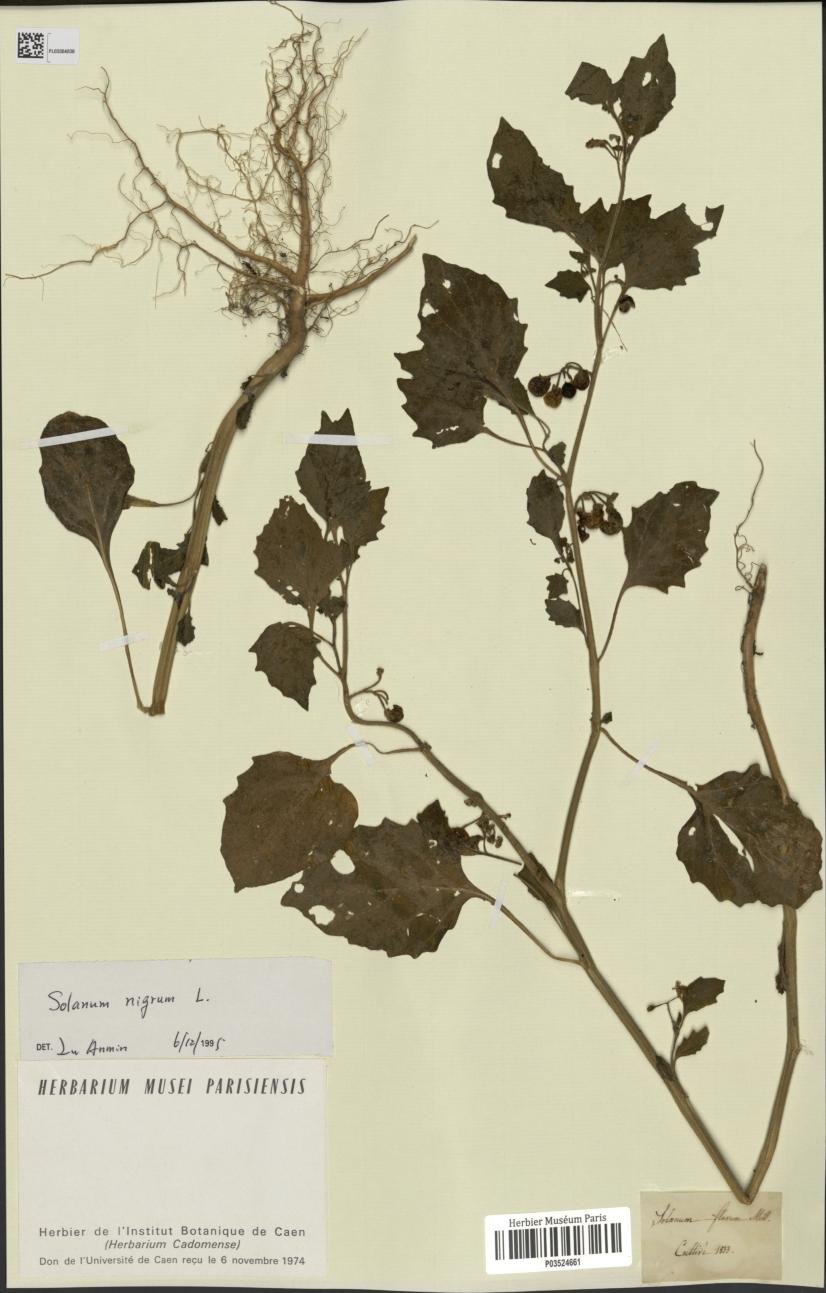 PL00384838
Solanum nigrum L.
DET. Lu Anmin 6/12/1995
HERBARIUM MUSEI PARISIENSIS
Herbier de l'Institut Botanique de Caen
(Herbarium Cadomense)
Don de l'Université de Caen reçu le 6 novembre 1974
Herbier Muséum Paris
P03524661
Solanum flavum
Cultivé 1833.